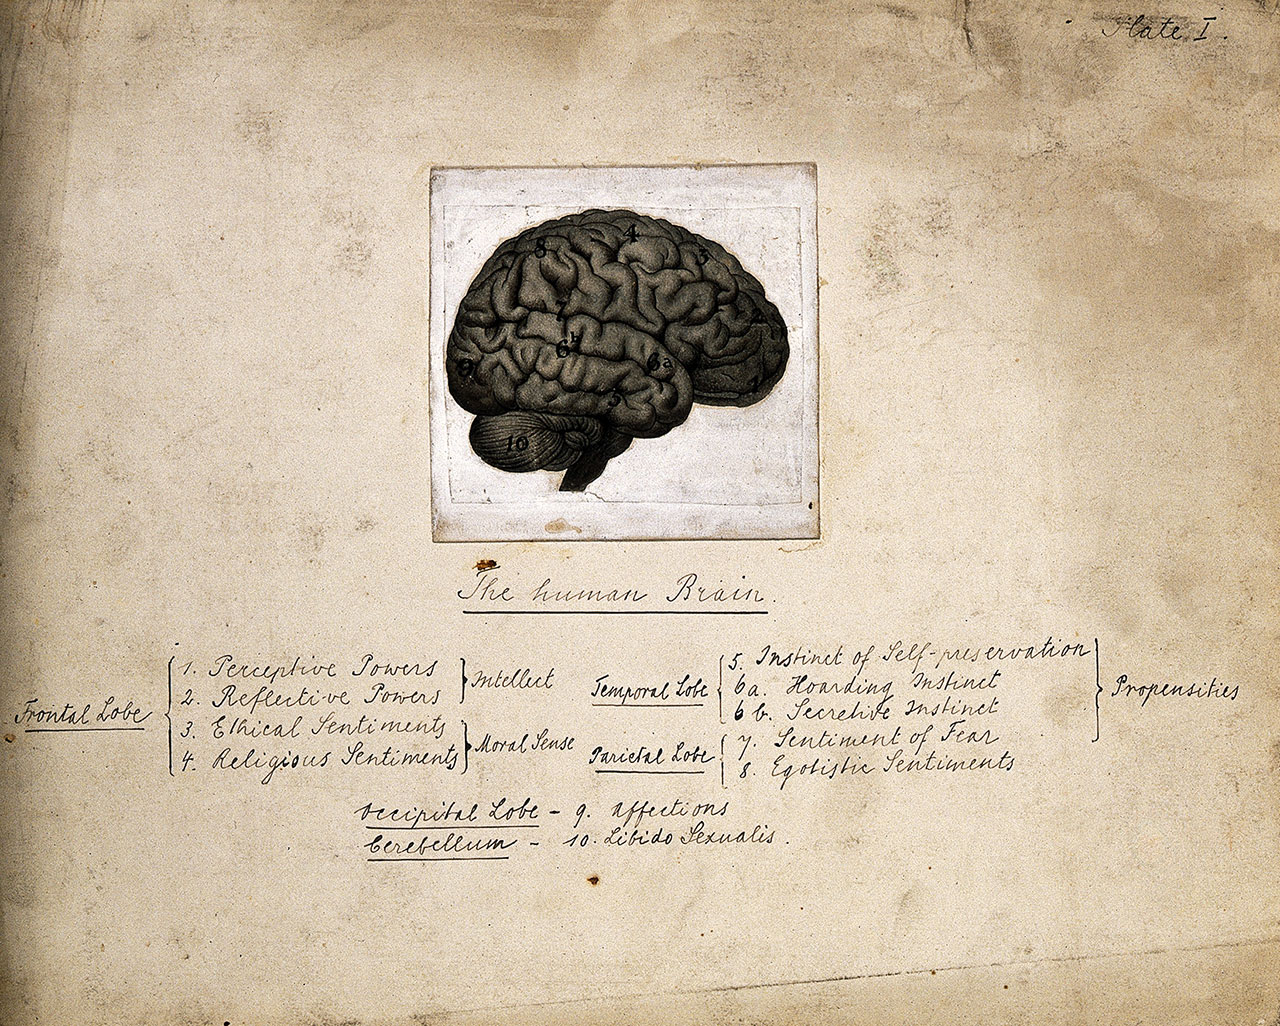 Plate I.
8
4
3
7
2
6b
6a
9
1
5
10
The human Brain.
Frontal Lobe
1. Perceptive Powers
2. Reflective Powers
Intellect
3. Ethical Sentiments
4. Religious Sentiments
Moral Sense
Temporal Lobe
5. Instinct of Self-preservation
6a. Hoarding Instinct
6 b. Secretive Instinct
Parietal Lobe
7. Sentiment of Fear
8. Egotistic Sentiments
Propensities
Occipital Lobe - 9. Affections
Cerebellum - 10. Libido Sexualis.